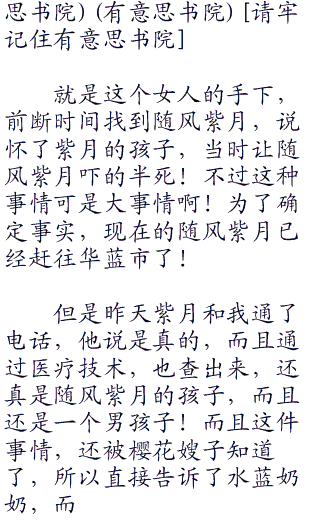 思书院) (有意思书院) [请牢
记住有意思书院]
就是这个女人的手下，
前断时间找到随风紫月，说
怀了紫月的孩子，当时让随
风紫月吓的半死！不过这种
事情可是大事情啊！为了确
定事实，现在的随风紫月已
经赶往华蓝市了！
但是昨天紫月和我通了
电话，他说是真的，而且通
过医疗技术，也查出来，还
真是随风紫月的孩子，而且
还是一个男孩子！而且这件
事情，还被樱花嫂子知道
了，所以直接告诉了水蓝奶
奶，而